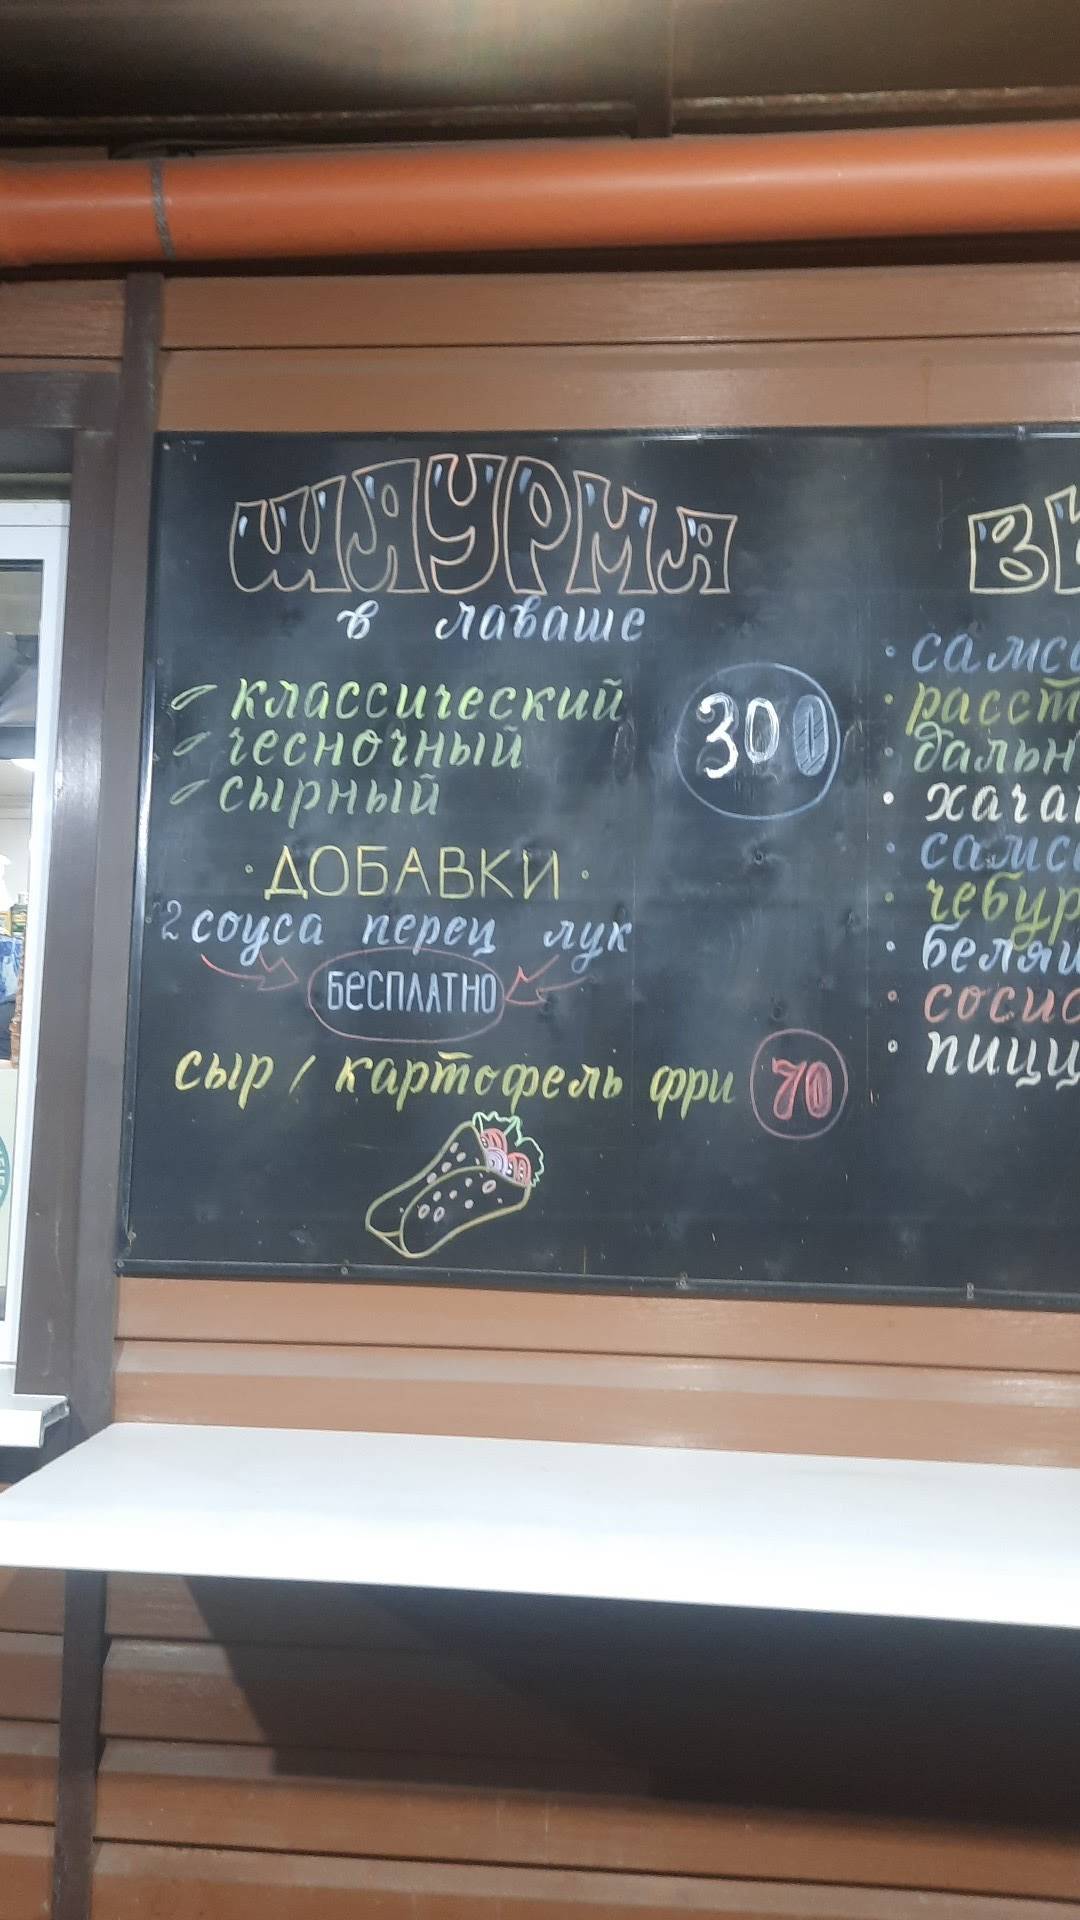 ШАУРМА
в лаваше
классический
чесночный
сырный
300
• ДОБАВКИ •
2 соуса перец лук
БЕСПЛАТНО
сыр / картофель фри 70
• самс
• расст
• дальн
• хача
• самс
• чебур
• беляш
• сосис
• пицц